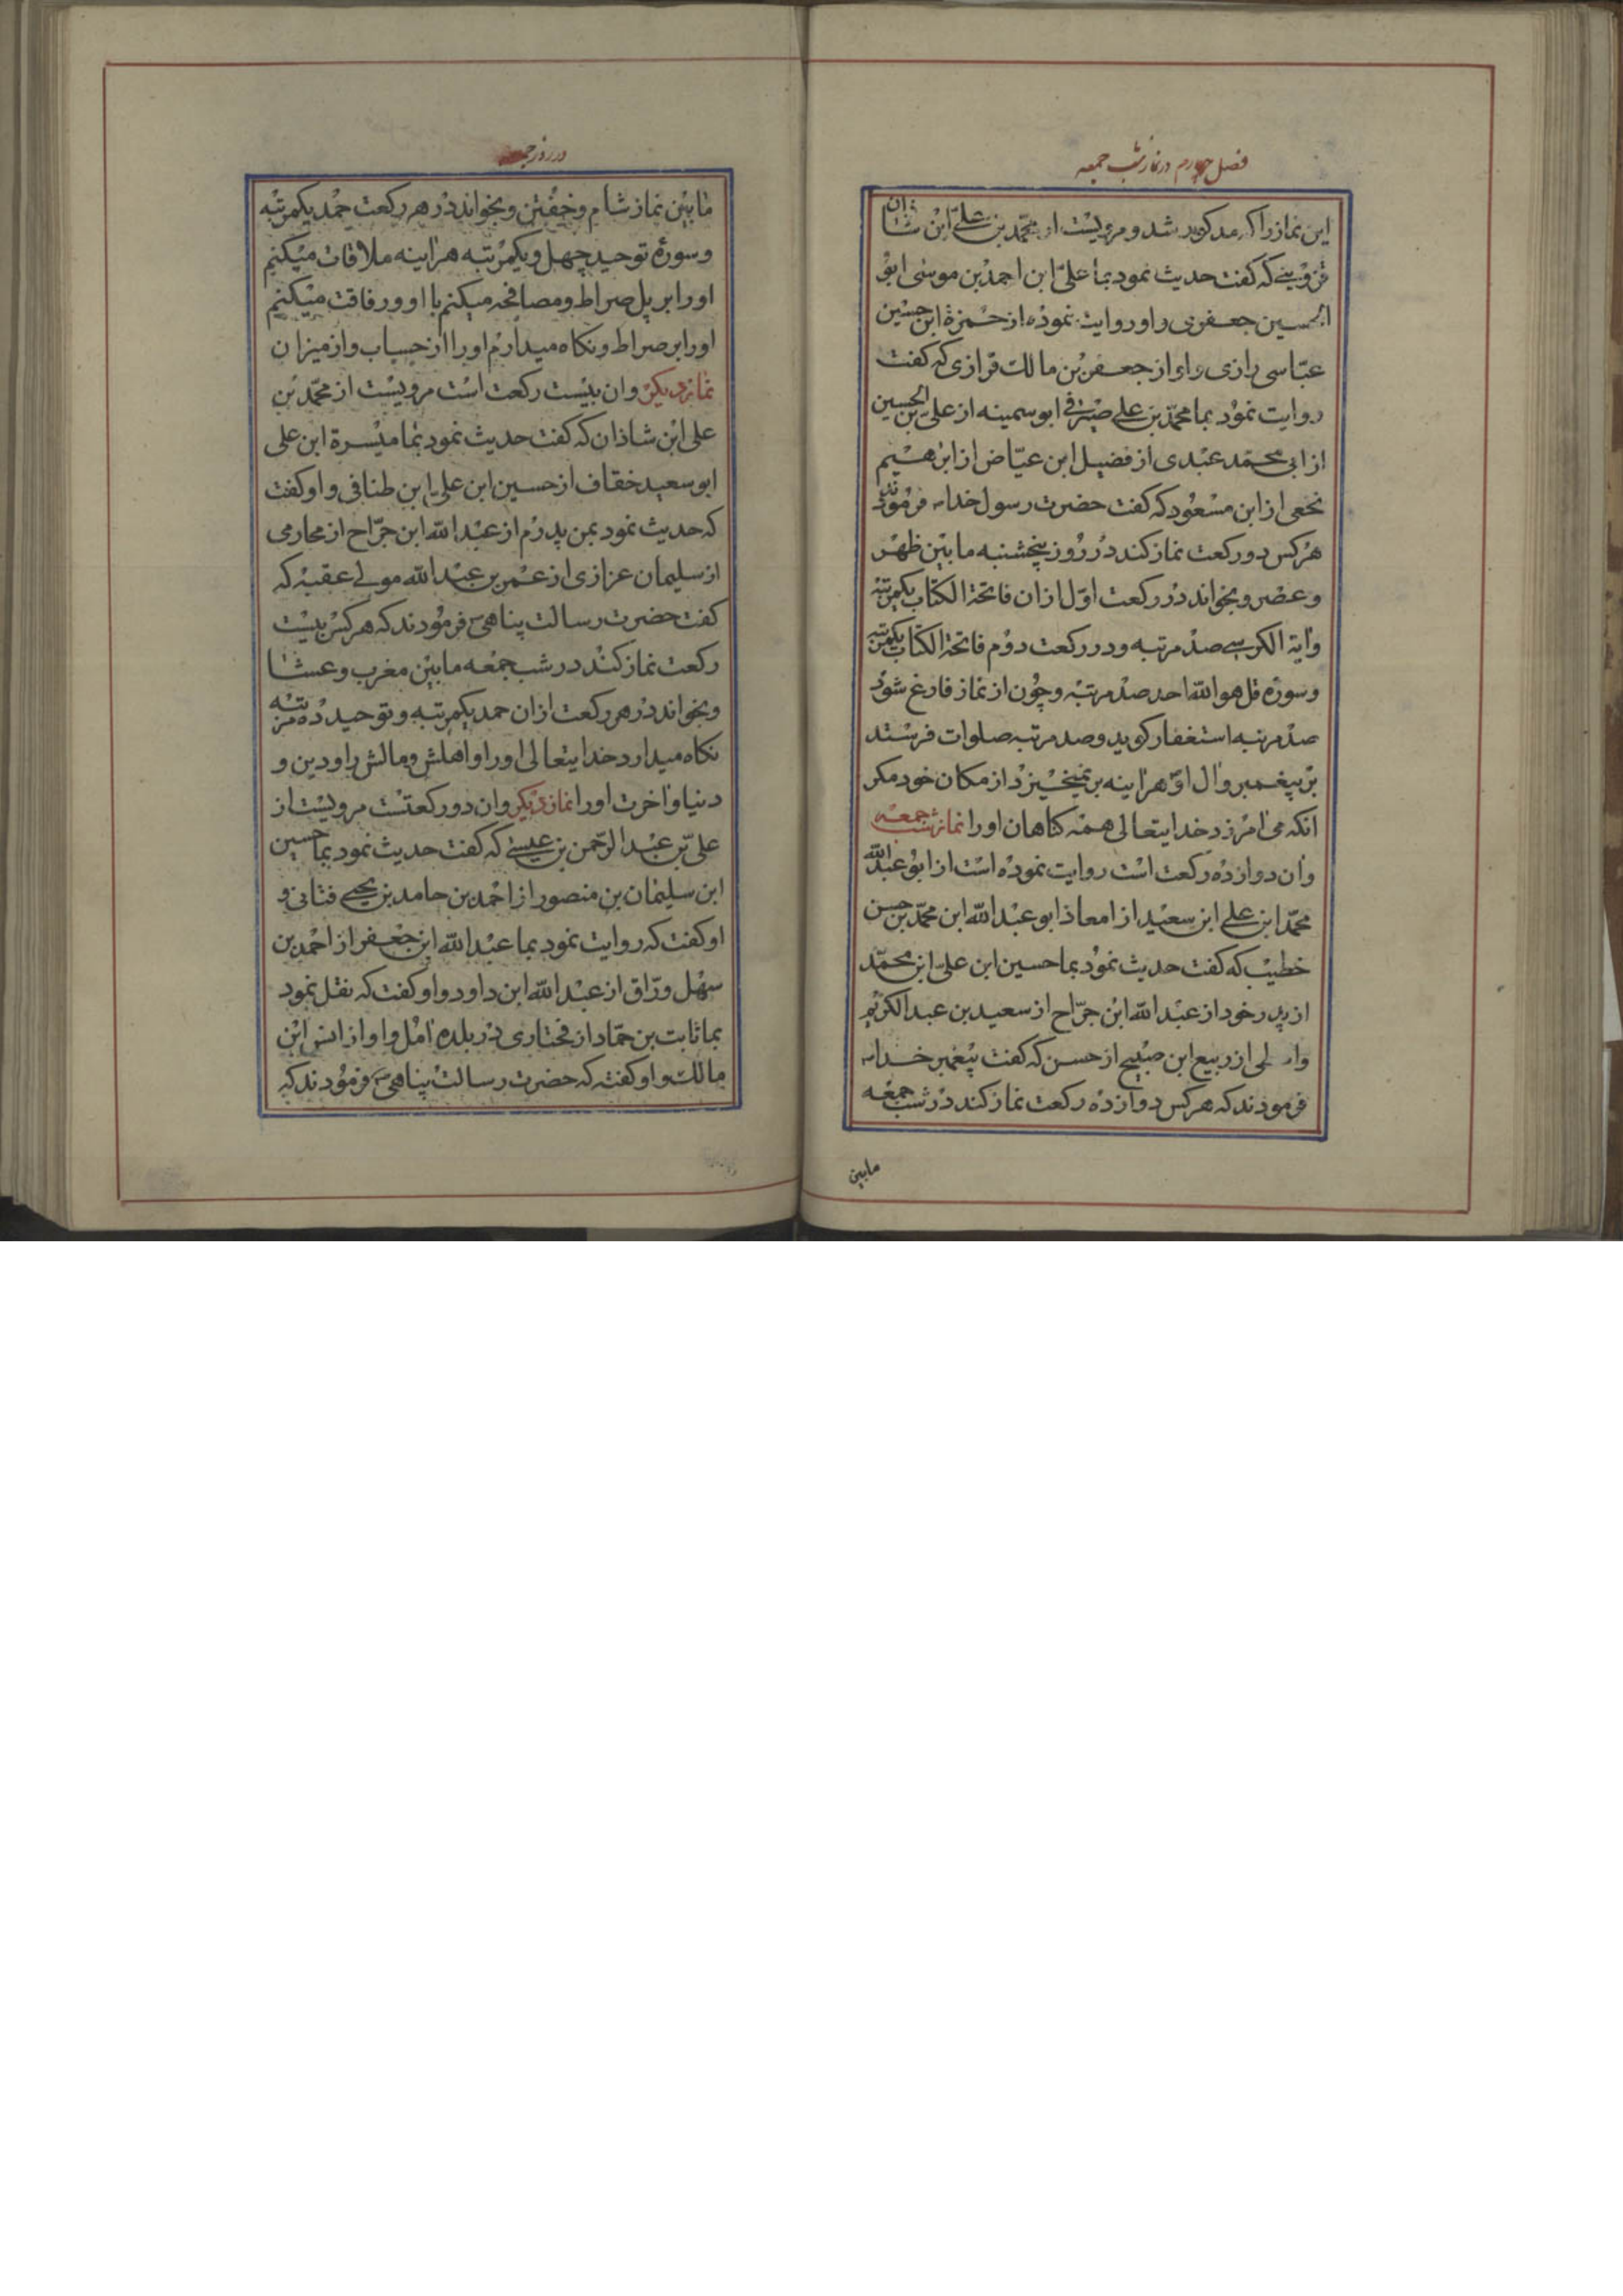 فصل چهارم در نماز شب جمعه
این نماز را که مذکور شد و مرویست از محمّد بن علیّ ابن شاذان
قزوینی که گفت حدیث نمود بما علیّ ابن احمد بن موسی ابو
الحسین جعفری و او روایت نموده از حمزة ابن حسین
عبّاسی رازی و او از جعفر بن مالک فزازی که گفت
روایت نمود بما محمّد بن علی صیرفی ابو سمینه از علی بن الحسین
از ابی محمّد عبدی از فضیل ابن عیّاض از ابرهیم
نخعی از ابن مسعود که گفت حضرت رسول خدا ص فرمودند
هر کس دو رکعت نماز کند در روز پنجشنبه ما بین ظهر
و عصر و بخواند در رکعت اوّل ازان فاتحة الکتاب یکمرتبه
و آیة الکرسی صد مرتبه و در رکعت دوم فاتحة الکتاب یکمرتبه
و سوره قل هو الله احد صد مرتبه و چون از نماز فارغ شود
صد مرتبه استغفار کوید و صد مرتبه صلوات فرستد
بر پیغمبر و آل او هر اینه بر نمیخیزد از مکان خود مکر
انکه می آمرزد خدایتعالی همه کناهان او را نماز شب جمعه
و آن دوازده رکعت است روایت نموده است از ابو عبد الله
محمّد ابن علی ابن سعید از امعاذ ابو عبد الله ابن محمّد بن حسن
خطیب که گفت حدیث نمود بما حسین ابن علیّ ابن محمّد
از پدر خود از عبد الله ابن جرّاح از سعید بن عبد الکریم
از ربیع ابن صبیح از حسن که گفت پیغمبر خدا ص
فرمودند که هر کس دوازده رکعت نماز کند در شب جمعه
مابین
در روز جمعه
ما بین نماز شام و خفتن و بخواند در هر رکعت حمد یکمرتبه
و سورۀ توحید چهل و یکمرتبه هر اینه ملاقات میکنم
او را بر پل صراط و مصافحه میکنم با او و رفاقت میکنم
او را بر صراط و نکاه میدارم او را از حساب و از میزان
نماز دیکر و ان بیست رکعت است مرویست از محمّد بن
علی ابن شاذان که گفت حدیث نمود بما میسرة ابن علی
ابو سعید خفّاف از حسین ابن علی ابن طنافی و او گفت
که حدیث نمود بمن پدرم از عبد الله ابن جرّاح از محاربی
از سلیمان عزازی از عمر بن عبد الله مولی عقبه که
گفت حضرت رسالت پناهی ص فرمودند که هر کس بیست
رکعت نماز کند در شب جمعه ما بین مغرب و عشا
و بخواند در هر رکعت ازان حمد یکمرتبه و توحید ده مرتبه
نکاه میدارد خدایتعالی او را و اهلش و مالش را و دین و
دنیا و آخرت او را نماز دیکر و ان دو رکعتست مرویست از
علیّ بن عبد الرّحمن بن عیسی که گفت حدیث نمود بما حسین
ابن سلیمان بن منصور از احمد بن حامد بن یحیی فتانی و
او گفت که روایت نمود بما عبد الله ابن جعفر از احمد بن
سهل ورّاق از عبد الله ابن داود و او گفت که نقل نمود
بما ثابت بن حمّاد از مختاری در بلده آمل و او از انس ابن
مالک و او گفته که حضرت رسالت پناهی ص فرمودند که